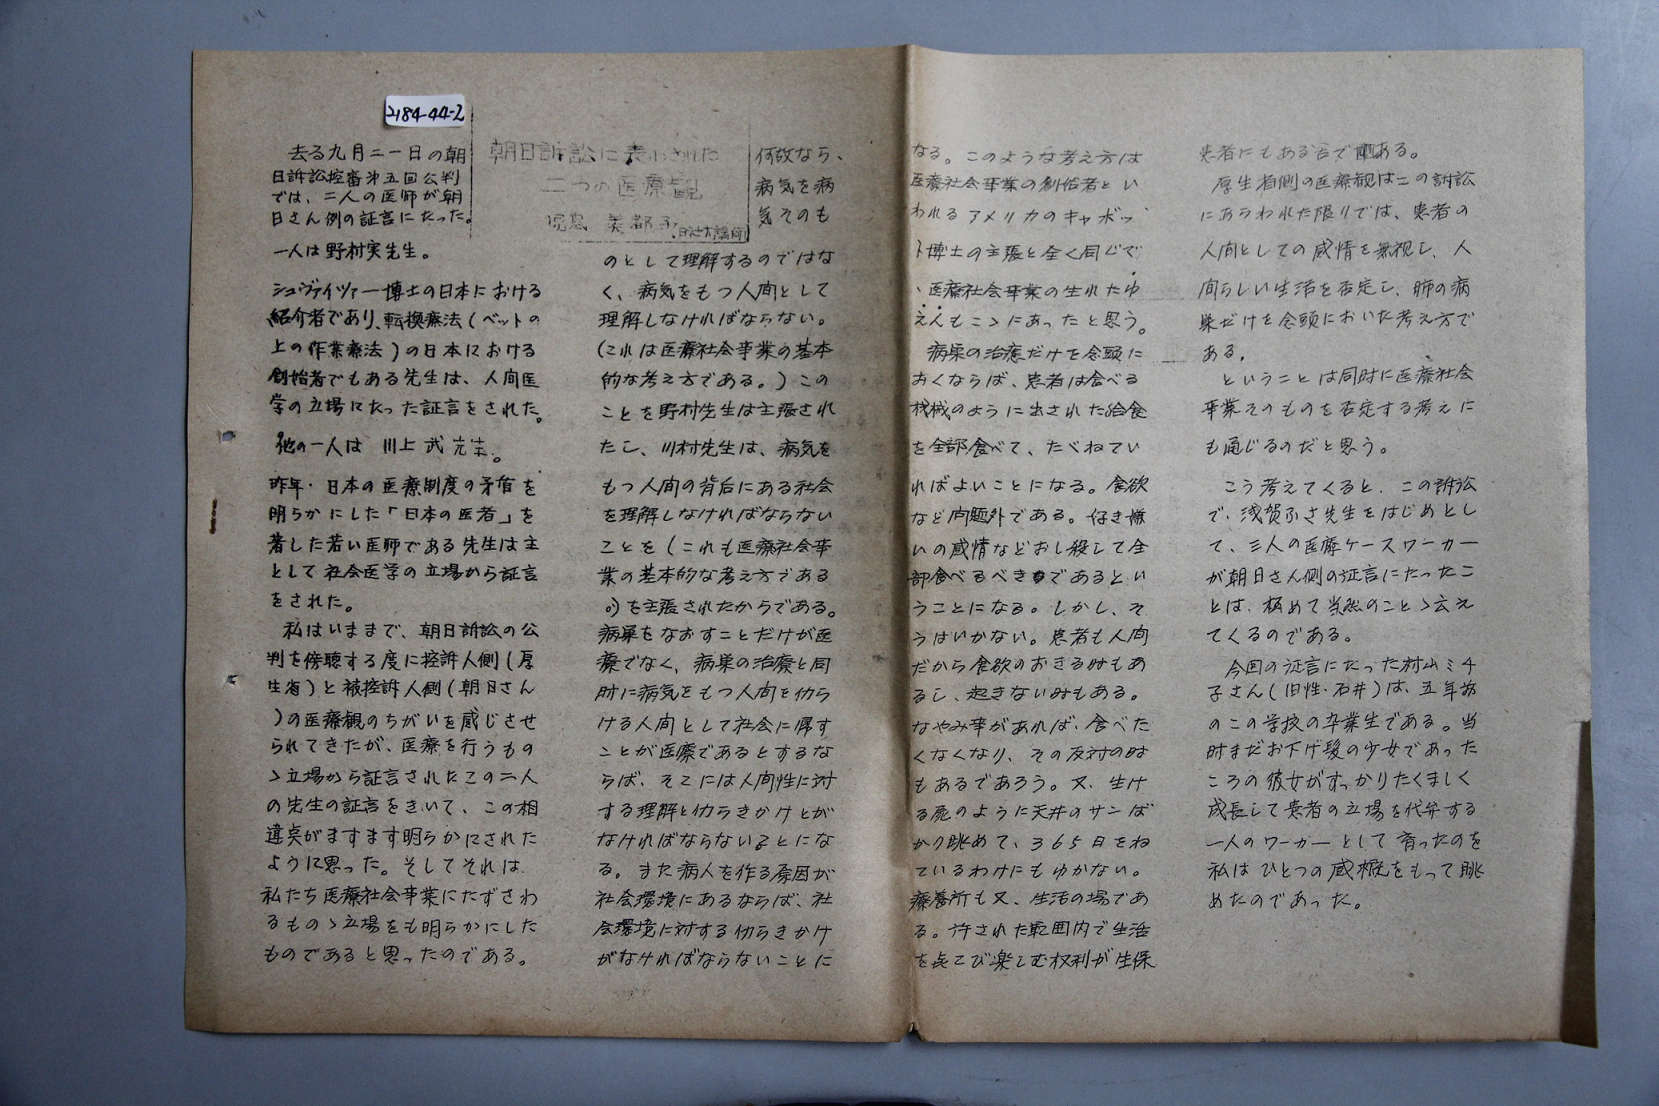 2184-44-2
朝日訴訟に表われた
二つの医療観
児島 美都子
去る九月二一日の朝
日訴訟控審第五回公判
では、二人の医師が朝
日さん側の証言にたった。
一人は野村実先生。
シュヴァイツァー博士の日本における
紹介者であり、転換療法(ベットの
上の作業療法)の日本における
創始者でもある先生は、人間医
学の立場にたった証言をされた。
他の一人は 川上 武 先生。
昨年・日本の医療制度の矛盾を
明らかにした「日本の医者」を
著した若い医師である先生は主
として社会医学の立場から証言
をされた。
私はいままで、朝日訴訟の公
判を傍聴する度に控訴人側(厚
生省)と被控訴人側(朝日さん
)の医療観のちがいを感じさせ
られてきたが、医療を行うもの
ゝ立場から証言されたこの二人
の先生の証言をきいて、この相
違点がますます明らかにされた
ように思った。そしてそれは
私たち医療社会事業にたずさわ
るものゝ立場をも明らかにした
ものであると思ったのである。
何故なら、
病気を病
気そのも
のとして理解するのではな
く、病気をもつ人間として
理解しなければならない。
(これは医療社会事業の基本
的な考え方である。)この
ことを野村先生は主張され
たし、川村先生は、病気を
もつ人間の背后にある社会
を理解しなければならない
ことを(これも医療社会事
業の基本的な考え方である
。)を主張されたからである。
病巣をなおすことだけが医
療でなく、病巣の治療と同
時に病気をもつ人間を仂ら
ける人間として社会に帰す
ことが医療であるとするな
らば、そこには人間性に対
する理解と仂らきかけとが
なければならないことにな
る。また病人を作る原因が
社会環境にあるならば、社
会環境に対する仂らきかけ
がなければならないことに
なる。このような考え方は
医療社会事業の創始者とい
われるアメリカのキャボッ
ト博士の主張と全く同じで
、医療社会事業の生れたゆ
えんもこゝにあったと思う。
病巣の治癒だけを念頭に
おくならば、患者は食べる
機械のように出された給食
を全部食べて、たべねてい
ればよいことになる。食欲
など問題外である。好き嫌
いの感情などおし殺して全
部食べるべきであるとい
うことになる。しかし、そ
うはいかない。患者も人間
だから食欲のおきる時もあ
るし、起きない時もある。
なやみ事があれば、食べた
くなくなり、その反対の時
もあるであろう。又、生け
る屍のように天井のサンば
かり眺めて、365日をね
ているわけにもゆかない。
療養所も又、生活の場であ
る。許された範囲内で生活
を㐂こび楽しむ権利が生保
患者にもある筈である。
厚生省側の医療観はこの訴訟
にあらわれた限りでは、患者の
人間としての感情を無視し、人
間らしい生活を否定し、肺の病
巣だけを念頭においた考え方で
ある。
ということは同時に医療社会
事業そのものを否定する考えに
も通じるのだと思う。
こう考えてくると、この訴訟
で、浅賀ふさ先生をはじめとし
て、三人の医療ケースワーカー
が朝日さん側の証言にたったこ
とは、極めて当然のことゝ云え
てくるのである。
今回の証言にたった村山ミチ
子さん(旧性・石井)は、五年前
のこの学校の卒業生である。当
時まだお下げ髪の少女であった
ころの彼女がすっかりたくましく
成長して患者の立場を代弁する
一人のワーカーとして育ったのを
私はひとつの感慨をもって眺
めたのであった。